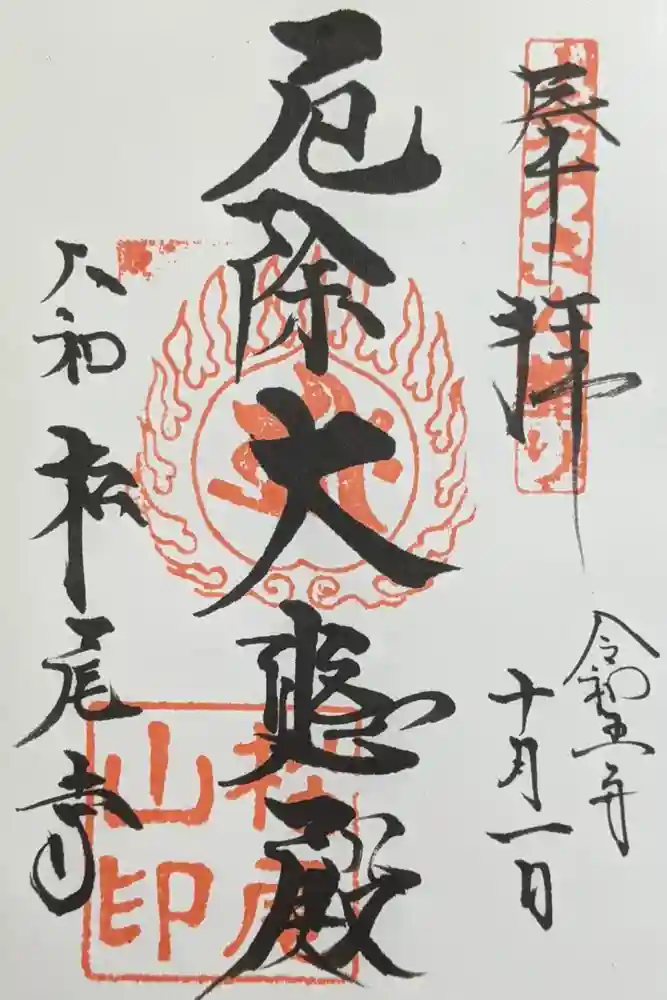 奉拝
令和五年
十月一日
厄除大悲殿
大和 松尾寺
松尾
山印